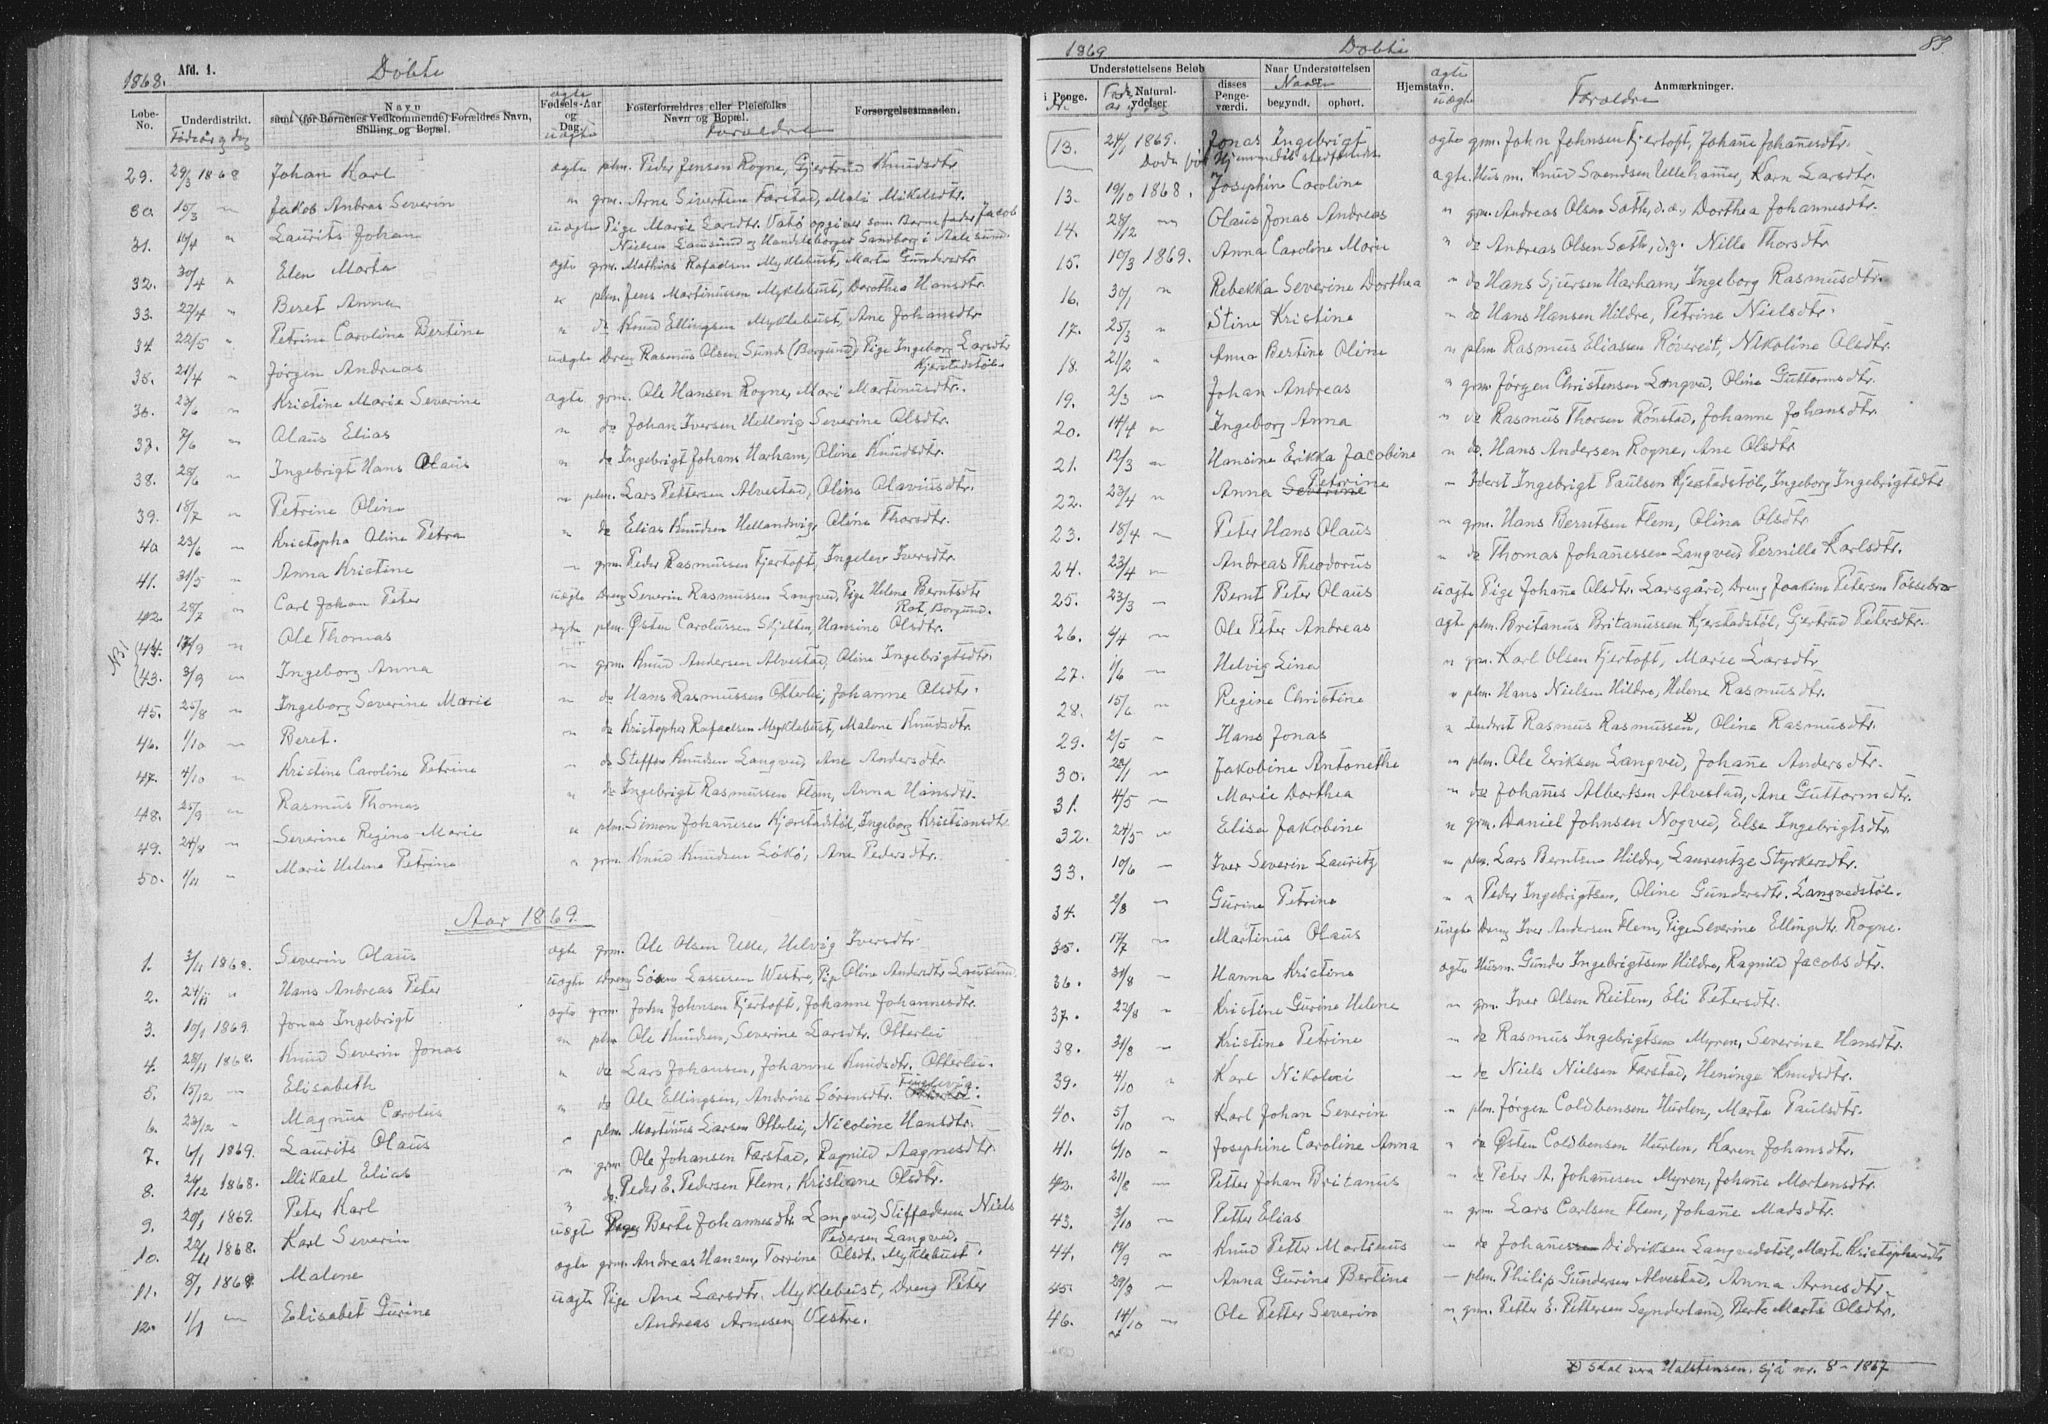 1868. Afd. 1. Döbte
Løbe-No. Underdistrikt. Navn samt (for Børnenes Vedkommende) Forældres Navn, Stilling og Bopæl. Fødsels-Aar og Dag. Fosterforældres eller Pleiefolks Navn og Bopæl. Forsørgelsesmaaden.
ægte uægte Forældre
29. 29/3 1868 Johan Karl ægte plm. Peder Jensen Rogne, Gjertrud Knudsdtr
30. 15/3 " Jakob Andras Severin " grm. Arne Sivertsen Farstad, Mali Mikelsdtr.
31. 10/4 " Laurits Johan uægte Pige Marie Larsdtr. Vatö opgiver som Barnefader Jacob
Nielsen Lausund og Handelsborger Sandborg i Aalesund.
32. 30/4 " Elen Marta ægte grm. Mathias Rafaelsen Myklebust, Marta Gundersdtr.
33. 27/4 " Beret Anna " plm. Jens Martinussen Myklebust, Dorothea Hansdtr.
34. 22/5 " Petrine Caroline Bertine " do Knud Ellingsen Myklebust, Ane Johansdtr
35. 21/4 " Jørgen Andreas uægte Dreng Rasmus Olsen Sunde (Borgund) Pige Ingeborg Larsdtr
Kjærstadstöl.
36. 23/6 " Kristine Marie Severine ægte grm. Ole Hansen Rogne, Mari Martinusdtr.
37. 7/6 " Olaus Elias " do Johan Iversen Hellevig Severine Olsdtr.
38. 28/6 " Ingebrigt Hans Olaus " do Ingebrigt Johans Harham, Oline Knudsdtr.
39. 18/7 " Petrine Oline " plm. Lars Pettersen Alvestad, Oline Olaviusdtr.
40 23/6 " Kristopha Oline Petra " do Elias Knudsen Hellandvig, Oline Thorsdtr.
41. 31/5 " Anna Kristine " grm. Peder Rasmussen Fjertoft, Ingelev Iversdtr.
42. 28/7 " Carl Johan Peter uægte Dreng Severin Rasmussen Langved, Pige Helene Berntsdtr
Rot, Borgund.
NB! (44. 17/9 " Ole Thomas ægte plm. Østen Carolussen Skjelten, Hansine Olsdtr.
(43. 3/9 " Ingeborg Anna " grm. Knud Andersen Alvestad, Oline Ingebrigtsdtr.
45. 25/8 " Ingeborg Severine Marie " do Hans Rasmussen Otterlei, Johanne Olsdtr.
46. 1/10 " Beret. " do Kristopher Rafaelsen Myklebust, Malene Knudsdtr
47. 4/10 " Kristine Caroline Petrine " do Steffen Knudsen Langved, Ane Andersdtr.
48. 25/9 " Rasmus Thomas " do Ingebrigt Rasmussen Flem, Anna Hansdtr.
49. 24/8 " Severine Regine Marie " plm. Simon Johannesen Kjærstadstöl, Ingeborg Kristiansdtr
50. 1/11 " Marie Helene Petrine " grm. Knud Knudsen Lökö, Ane Pedersdtr.
Aar 1869.
1. 3/11 1868. Severin Olaus ægte grm. Ole Olsen Ulle, Helvig Iversdtr
2. 24/11 " Hans Andreas Peter uægte dreng Sören Lassesen Westre, Pige Oline Andersdtr Lausund
3. 10/1 1869. Jonas Ingebrigt ægte grm. John Johnsen Fjertoft, Johanne Johannesdtr.
4. 28/11 1868. Knud Severin Jonas " plm Ole Knudsen, Severine Larsdtr. Otterlei
5. 15/12 " Elisabeth " do Lars Johansen, Johanne Knudsdtr. Otterlei.
6. 23/12 " Magnus Carolus " do Ole Ellingsen, Andrine Sörensdtr.
7. 6/1 1869. Laurits Olaus " plm. Martinus Larsen Otterlei, Nicoline Hansdtr.
8. 26/12 1868. Mikael Elias " grm. Ole Johansen Farstad, Ragnild Aagnesdtr.
9. 20/1 1869. Peter Karl " do. Peder E. Pedersen Flem, Kristiane Olsdtr.
10. 22/11 1868. Karl Severin uægte Pige Berte Johannesdtr. Langved, Stiffaderen Niels
Pedersen Langved.
11. 8/1 1868. Malene ægte grm. Andreas Hansen, Torrine Olsdt. Myklebust.
12. 1/1 " Elisabet Gurine uægte Pige Ane Larsdtr. Myklebust, Dreng Peter
Andreas Arnesen Vestre.
1869 Döbte 89.
Understøttelsens Beløb Naar Understøttelsen er Hjemstavn. Anmærkninger.
i Penge. Natural-ydelser disses Pengeværdi. begyndt. ophørt.
Nr. Navn ægte uægte Forældre
13. 24/1 1869. Jonas Ingebrigt ægte grm. John Johnsen Fjertoft, Johane Johanesdtr.
13. 19/10 1868. Josephine Caroline ægte Husm. Knud Svendsen Ullehamer, Karn Larsdtr.
14. 28/12 " Olaus Jonas Andreas " grm. Andreas Olsen Sæth, d.æ., Dorthea Johannesdtr.
15. 10/3 1869. Anna Caroline Marie " do Andreas Olsen Sæth, d.y. Nille Thorsdtr
16. 30/1 " Rebekka Severine Dorthea " do Hans Sjursen Harham, Ingeborg Rasmusdtr.
17. 25/3 " Stine Kristine " do Hans Hansen Hildre, Petrine Nielsdtr.
18. 21/2 " Anna Bertine Oline " plm Rasmus Eliassen Rövereit, Nikoline Olsdtr.
19. 2/3 " Johan Andreas " grm. Jörgen Christensen Longved, Oline Guttormsdtr.
20. 14/4 " Ingeborg Anna " do Rasmus Thorsen Rönstad, Johanne Johansdtr.
21. 12/3 " Hansine Erikka Jacobine " do. Hans Andersen Rogne, Ane Olsdtr.
22. 23/4 " Anna Severine Petrine " Iderst Ingebrigt Paulsen Kjerstadstöl, Ingeborg Ingebrigtsdtr
23. 18/4 " Peter Hans Olaus " grm. Hans Berntsen Flem, Olina Olsdtr
24. 23/4 " Andreas Theodorus " do Thomas Johanessen Langved Pernille Karlsdtr.
25. 23/3 " Bernt Peter Olaus uægte Pige Johane Olsdtr. Larsgård, Dreng Joakim Petersen Fossebro
26. 4/4 " Ole Peter Andreas ægte plm. Britanus Britanussen Kjerstadstöl, Gjertrud Petersdtr.
27. 1/6 " Helvig Lina " grm. Karl Olsen Fjertoft, Marie Larsdtr
28. 15/6 " Regine Christine " plm. Hans Nielsen Hildre, Helene Rasmusdtr.
29. 2/5 " Hans Jonas " Inderst Rasmus Rasmussen x), Oline Rasmusdtr.
30. 28/1 " Jakobine Antonethe " plm. Ole Eriksen Langved, Johane Andersdtr.
31. 4/5 " Marie Dorthea " do Johanes Albertsen Alvestad, Ane Guttormsdtr.
32. 24/5 " Elisa Jakobine " grm. Daniel Johnsen Nogved, Else Ingebrigtsdtr.
33. 10/6 " Iver Severin Lauritz " plm. Lars Berntsen Hildre, Laurentze Styrkersdtr.
34. 2/8 " Gurine Petrine " " Peder Ingebrigtsen, Oline Gundersdtr. Langvedstöl.
35. 17/7 " Martinus Olaus uægte Dreng Iver Andersen Flem, Pige Severine Ellingsdtr. Rogne.
36. 31/8 " Hanna Kristine ægte Husm. Gunder Ingebrigtsen Hildre, Ragnild Jacobsdtr.
37. 22/8 " Kristine Gurine Helene " grm. Iver Olsen Reiten, Eli Petersdtr.
38. 31/8 " Kristine Petrine " do Rasmus Ingebrigtsen Myren, Severine Hansdtr.
39. 4/10 " Karl Nikolai " do Niels Nielsen Farstad, Heninge Knudsdtr.
40. 5/10 " Karl Johan Severin " plm. Jørgen Coldbensen Hurlen, Marte Paulsdtr.
41. 6/10 " Josephine Caroline Anna " do Østen Coldbensen Hurlen, Karen Johansdtr.
42. 21/8 " Petter Johan Britanus " do Peter A. Johanesen Myren, Johane Mortensdtr.
43. 3/10 " Petter Elias " grm. Lars Carlsen Flem, Johane Madsdtr.
44. 19/9 " Knud Petter Martinus " do Johanesen Didriksen Langvedstöl, Marte Kristophersdtr
45. 29/8 " Anna Gurine Bertine " plm. Philip Gundersen Alvestad, Anna Arnesdtr.
46. 14/10 " Ole Petter Severin " grm. Petter E. Pettersen Synderland, Berte Marta Olsdtr.
x) Skal vera Halstensen. sjå nr. 8 - 1867